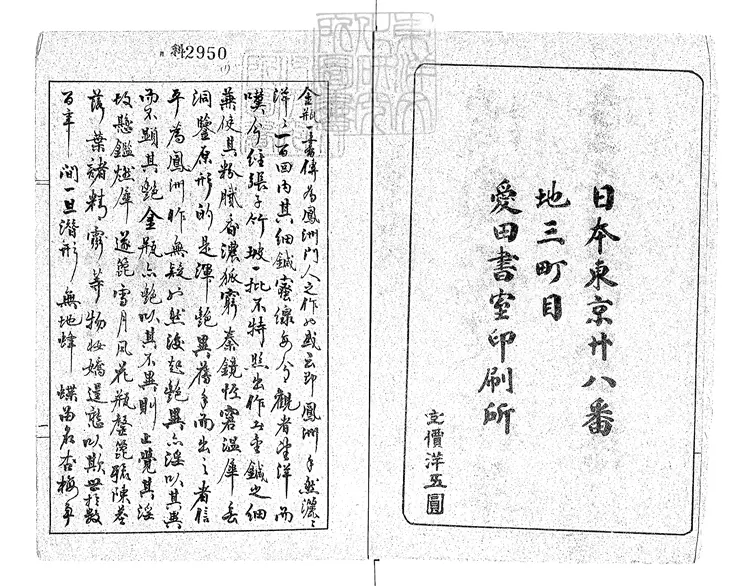 日本東京廿八番
地三町目
愛田書室印刷所
定價洋五圓
料2950
金瓶一書傳為鳳洲門人之作也或云即鳳洲手然灑灑
洋洋一百回內其細鍼蜜線每令觀者望洋而
嘆今經張子竹坡一批不特照出作者金鍼之細
兼使其粉膩香濃狐窮秦鏡怪窘溫犀無
洞鑒原形的是渾艷異舊手而出之者信
乎為鳳洲作無疑也然後起艷異亦淫以其異
而不顯其艷金瓶亦艷以其不異則止覺其淫
故懸鑑燃犀遂使雪月風花瓶罄篦梳陳莖
落葉諸精靈等物妝嬌逞態以欺世於數
百年間一旦潛形無地蜂蝶留名杏梅爭